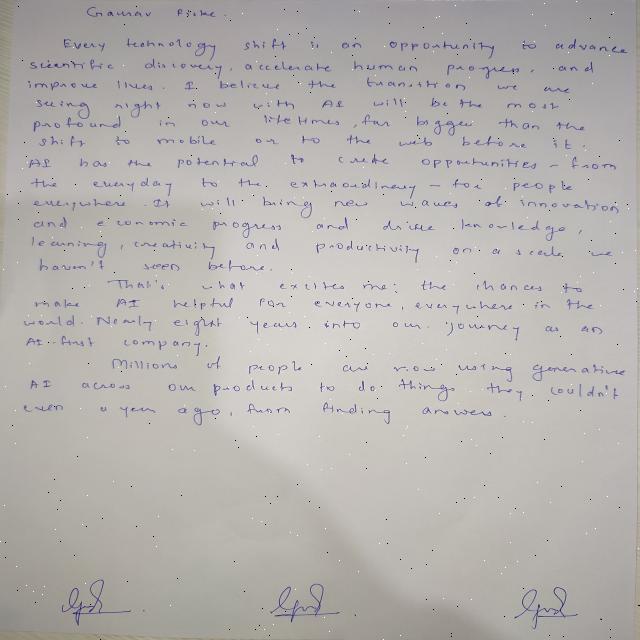 Gaurav
Every technology shift is an opportunity to advance
scientific discovery, accelerate human progress, and
improve lives. I believe the transition we are
seeing right now with AI will be the most
profound in our lifetimes, far bigger than the
shift to mobile or to the web before it.
AI has the potential to create opportunities - from
the everyday to the extraordinary - for people
everywhere. It will bring new waves of innovation
and economic progress and drive knowledge,
learning, creativity and productivity on a scale we
haven't seen before.
That's what excites me: the chances to
make AI helpful for everyone, everywhere in the
world. Nearly eight years into our journey as an
AI-first company.
Millions of people are now using generative
AI across our products to do things they couldn't
even a year ago, from finding answers.